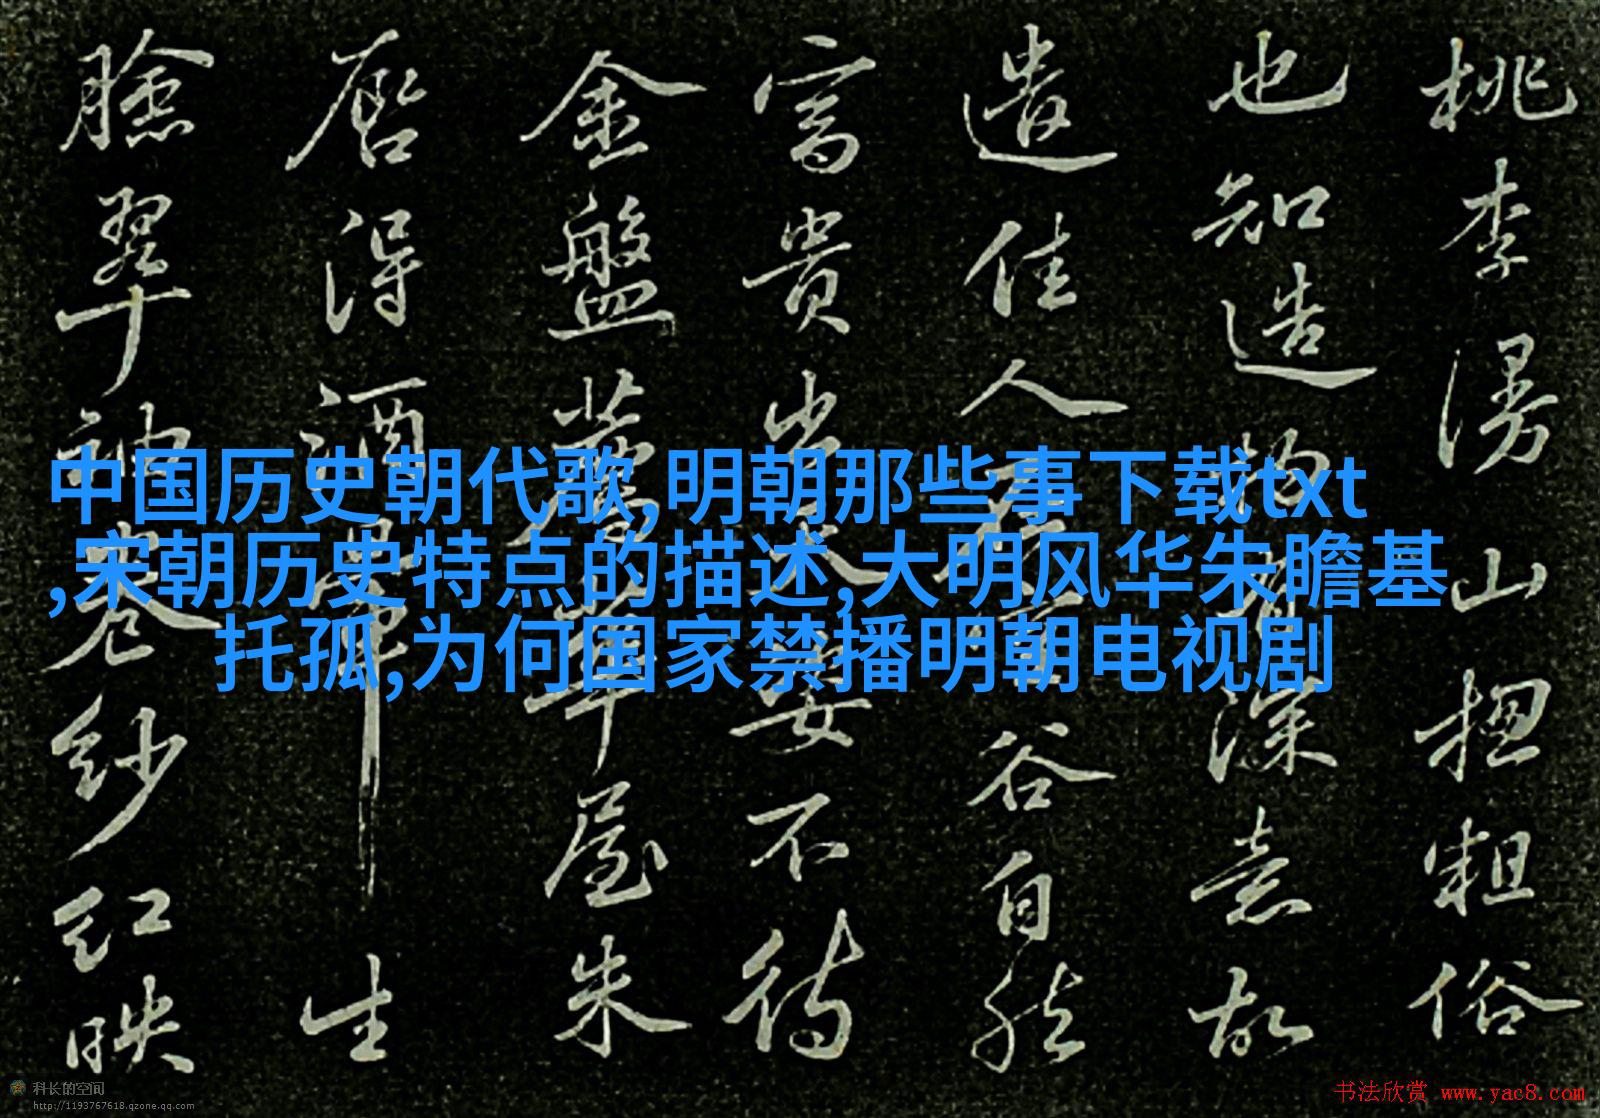 中国历史朝代歌,明朝那些事下载txt
,宋朝历史特点的描述,大明风华朱瞻基
托孤,为何国家禁播明朝电视剧
桃李漫山揔粗俗
也知造物有深意故
遣佳人在空谷自然
富貴出天姿不待
金盤薦華屋朱
唇得酒暈生
臉翠袖卷紗紅映
科长的空间
http://1193767618.qzone.qq.com
书法欣赏 www.yac8.com